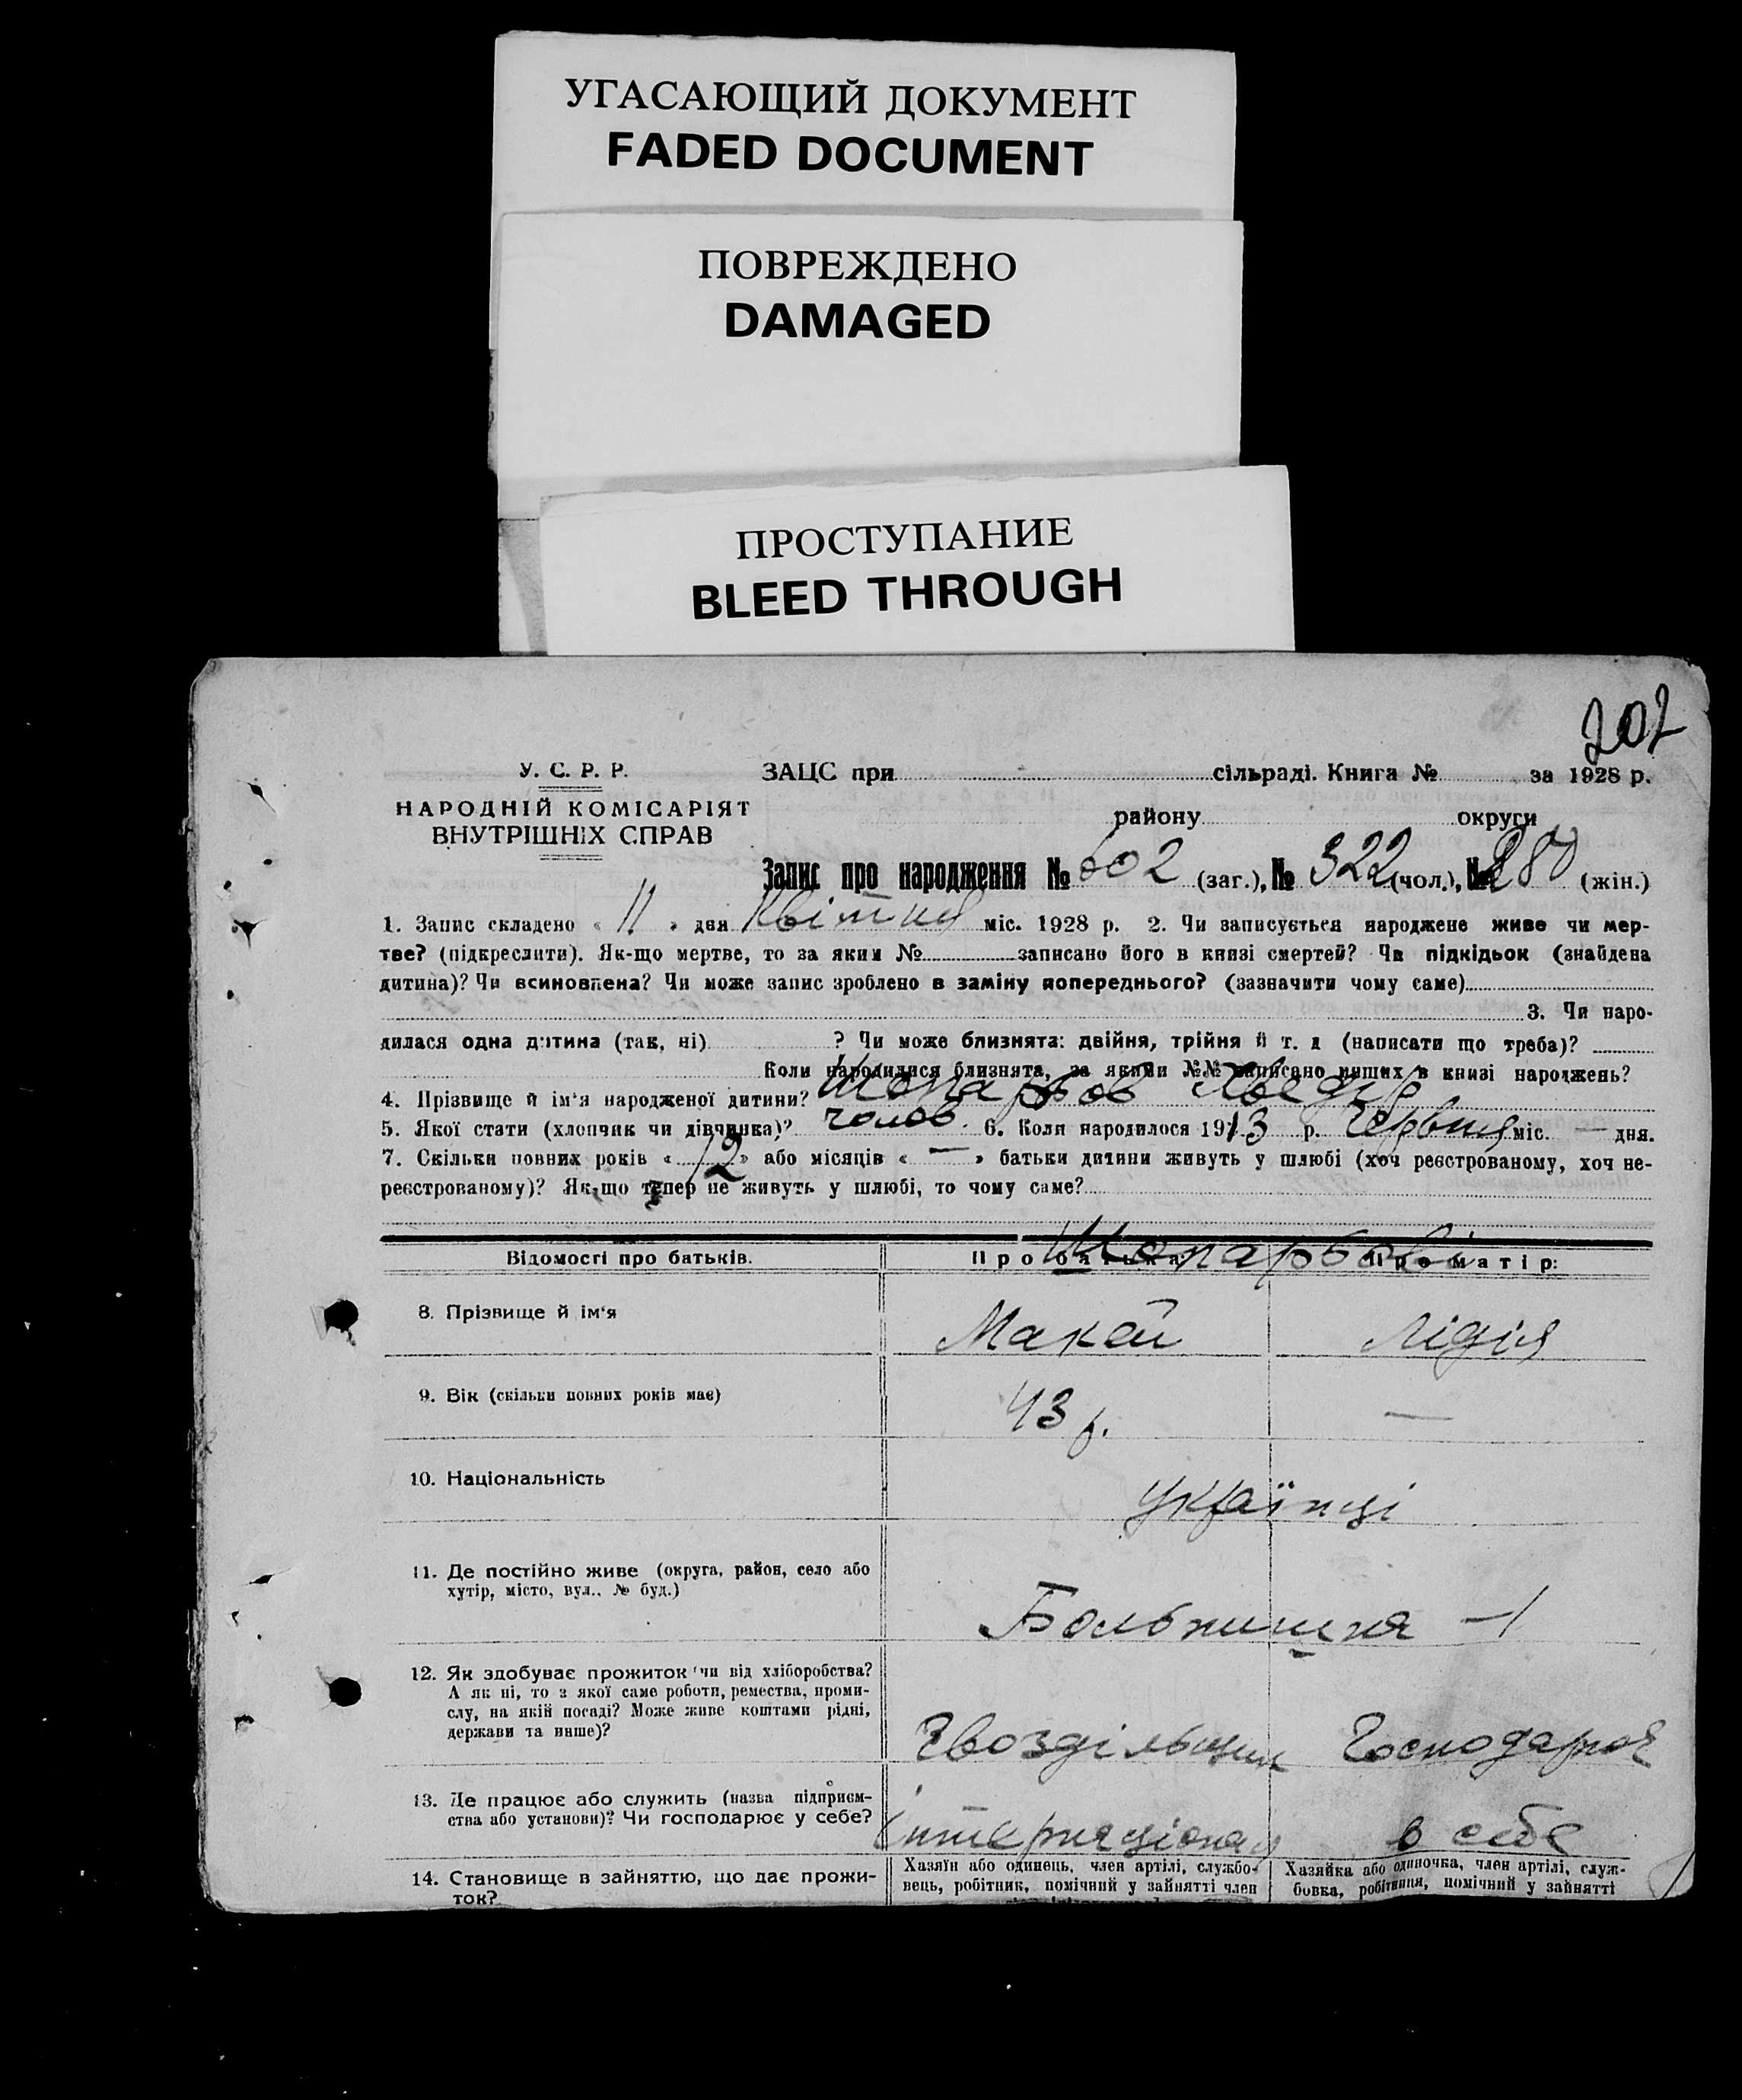 УГАСАЮЩИЙ ДОКУМЕНТ
FADED DOCUMENT
ПОВРЕЖДЕНО
DAMAGED
ПРОСТУПАНИЕ
BLEED THROUGH
202
У. С. Р. Р.
НАРОДНІЙ КОМІСАРІЯТ
ВНУТРІШНІХ СПРАВ
ЗАЦС при сільраді. Книга № за 1928 р.
району округи
Запис про народження № 602 (заг.), № 322 (чол.), № 280 (жін.)
1. Запис складено « 11 » дня Квітня міс. 1928 р. 2. Чи записується народжене живе чи мер-
тве? (підкреслити). Як-що мертве, то за яким № записано його в книзі смертей? Чи підкідьок (знайдена
дитина)? Чи всиновлена? Чи може запис зроблено в заміну попереднього? (зазначити чому саме)
3. Чи наро-
дилася одна дитина (так, ні) ? Чи може близнята: двійня, трійня й т. д (написати що треба)?
Коли народилися близнята, за якими №№ записано инших в книзі народжень?
4. Прізвище й ім'я народженої дитини?
5. Якої стати (хлопчик чи дівчинка)? чолов. 6. Коли народилося 1913 р. Червня міс. — дня.
7. Скільки повних років « 12 » або місяців « — » батьки дитини живуть у шлюбі (хоч реєстрованому, хоч не-
реєстрованому)? Як-що тепер не живуть у шлюбі, то чому саме?
Відомості про батьків. Про батька: Про матір:
8. Прізвище й ім'я Макей Лідія
9. Вік (скільки повних років має) 43 р. —
10. Національність Українці
11. Де постійно живе (округа, район, село або
хутір, місто, вул., № буд.)
Больнишня — 1
12. Як здобуває прожиток чи від хліборобства?
А як ні, то з якої саме роботи, ремества, проми-
слу, на якій посаді? Може живе коштами рідні,
держави та инше)?
Гвоздільщик Господарює
13. Де працює або служить (назва підприєм-
ства або установи)? Чи господарює у себе?
Інтернаціонал в себе
14. Становище в зайняттю, що дає прожи-
ток?
Хазяїн або одинець, член артілі, службо-
вець, робітник, помічний у зайнятті член
Хазяйка або одиночка, член артілі, служ-
бовка, робітниця, помічний у зайнятті